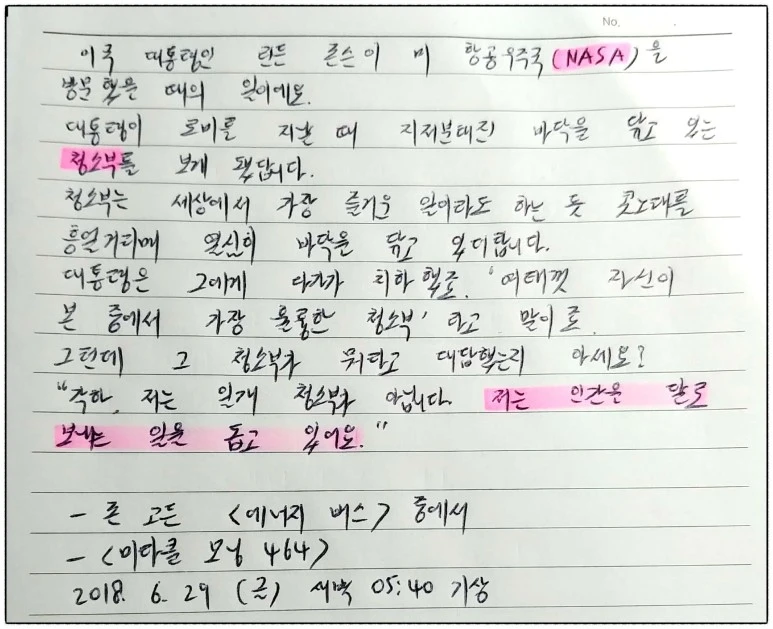 No.
미국 대통령인 린든 존슨이 미 항공우주국(NASA)을
방문했을 때의 일이에요.
대통령이 로비를 지날 때 지저분해진 바닥을 닦고 있는
청소부를 보게 됐답니다.
청소부는 세상에서 가장 즐거운 일이라도 하는 듯 콧노래를
흥얼거리며 열심히 바닥을 닦고 있더랍니다.
대통령은 그에게 다가가 치하했죠. '여태껏 자신이
본 중에서 가장 훌륭한 청소부'라고 말이죠.
그런데 그 청소부가 뭐라고 대답했는지 아세요?
"각하, 저는 일개 청소부가 아닙니다. 저는 인간을 달로
보내는 일을 돕고 있어요."
- 존 고든 <에너지 버스> 중에서
- <미라클 모닝 464>
2018. 6. 29 (금) 새벽 05:40 기상